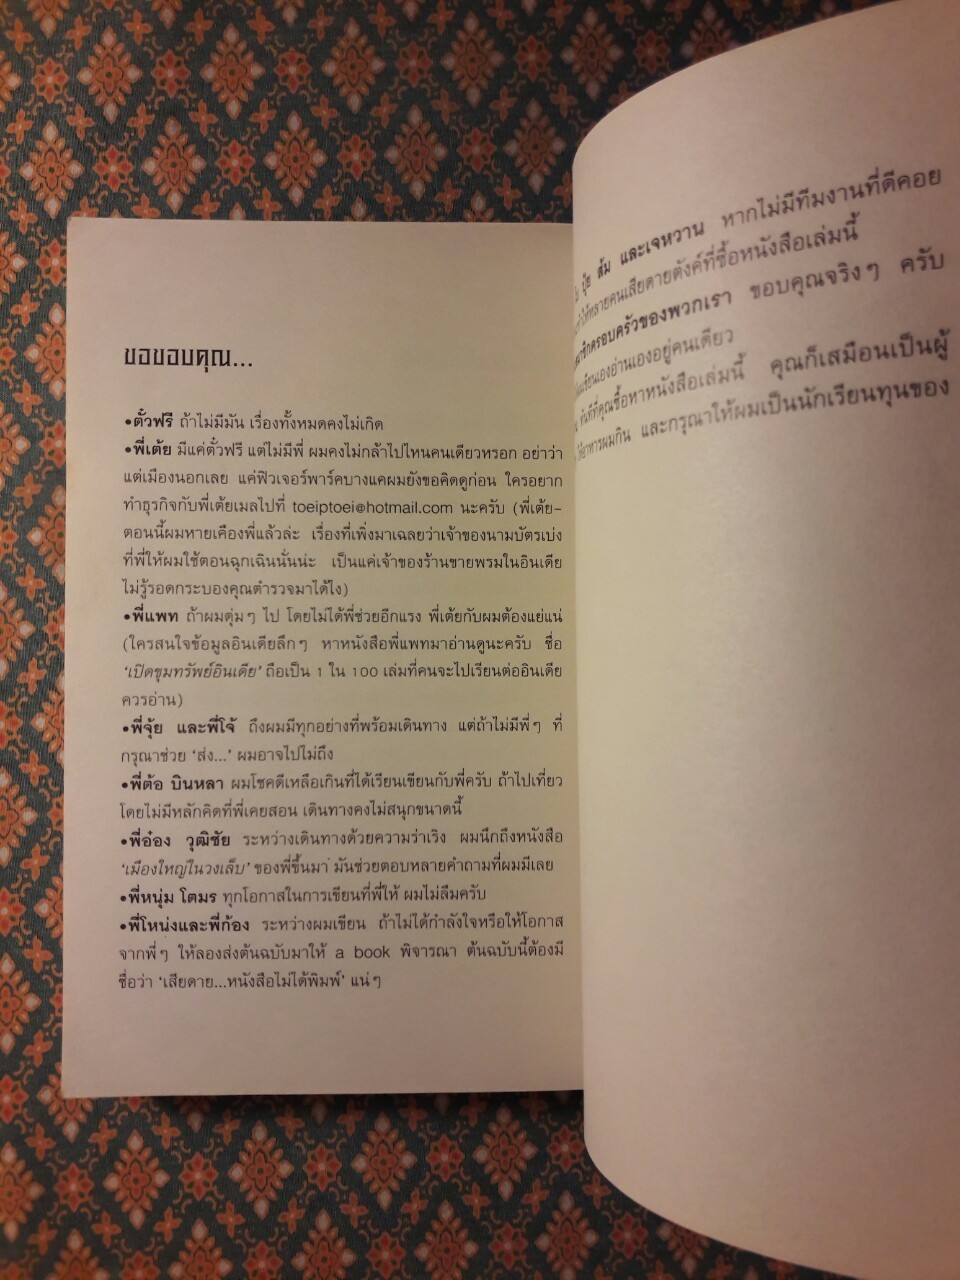 ขอขอบคุณ...
•ตั๋วฟรี ถ้าไม่มีมัน เรื่องทั้งหมดคงไม่เกิด
•พี่เต้ย มีแค่ตั๋วฟรี แต่ไม่มีพี่ ผมคงไม่กล้าไปไหนคนเดียวหรอก อย่าว่า
แต่เมืองนอกเลย แค่ฟิวเจอร์พาร์คบางแคผมยังขอคิดดูก่อน ใครอยาก
ทำธุรกิจกับพี่เต้ยเมลไปที่ toeiptoei@hotmail.com นะครับ (พี่เต้ย-
ตอนนี้ผมหายเคืองพี่แล้วล่ะ เรื่องที่เพิ่งมาเฉลยว่าเจ้าของนามบัตรเบ่ง
ที่พี่ให้ผมใช้ตอนฉุกเฉินนั่นน่ะ เป็นแค่เจ้าของร้านขายพรมในอินเดีย
ไม่รู้รอดกระบองคุณตำรวจมาได้ไง)
•พี่แพท ถ้าผมดุ่มๆ ไป โดยไม่ได้พี่ช่วยอีกแรง พี่เต้ยกับผมต้องแย่แน่
(ใครสนใจข้อมูลอินเดียลึกๆ หาหนังสือพี่แพทมาอ่านดูนะครับ ชื่อ
‘เปิดขุมทรัพย์อินเดีย’ ถือเป็น 1 ใน 100 เล่มที่คนจะไปเรียนต่ออินเดีย
ควรอ่าน)
•พี่จุ้ย และพี่โจ้ ถึงผมมีทุกอย่างที่พร้อมเดินทาง แต่ถ้าไม่มีพี่ๆ ที่
กรุณาช่วย ‘ส่ง...’ ผมอาจไปไม่ถึง
•พี่ต้อ บินหลา ผมโชคดีเหลือเกินที่ได้เรียนเขียนกับพี่ครับ ถ้าไปเที่ยว
โดยไม่มีหลักคิดที่พี่เคยสอน เดินทางคงไม่สนุกขนาดนี้
•พี่อ๋อง วุฒิชัย ระหว่างเดินทางด้วยความร่าเริง ผมนึกถึงหนังสือ
‘เมืองใหญ่ในวงเล็บ’ ของพี่ขึ้นมา มันช่วยตอบหลายคำถามที่ผมมีเลย
•พี่หนุ่ม โตมร ทุกโอกาสในการเขียนที่พี่ให้ ผมไม่ลืมครับ
•พี่โหน่งและพี่ก้อง ระหว่างผมเขียน ถ้าไม่ได้กำลังใจหรือให้โอกาส
จากพี่ๆ ให้ลองส่งต้นฉบับมาให้ a book พิจารณา ต้นฉบับนี้ต้องมี
ชื่อว่า ‘เสียดาย...หนังสือไม่ได้พิมพ์’ แน่ๆ
ปุ๋ย ส้ม และเจหวาน หากไม่มีทีมงานที่ดีคอย
ให้หลายคนเสียดายตังค์ที่ซื้อหนังสือเล่มนี้
ครอบครัวของพวกเรา ขอบคุณจริงๆ ครับ
เขียนเองอ่านเองอยู่คนเดียว
ทันทีที่คุณซื้อหาหนังสือเล่มนี้ คุณก็เสมือนเป็นผู้
ให้อาหารผมกิน และกรุณาให้ผมเป็นนักเรียนทุนของ